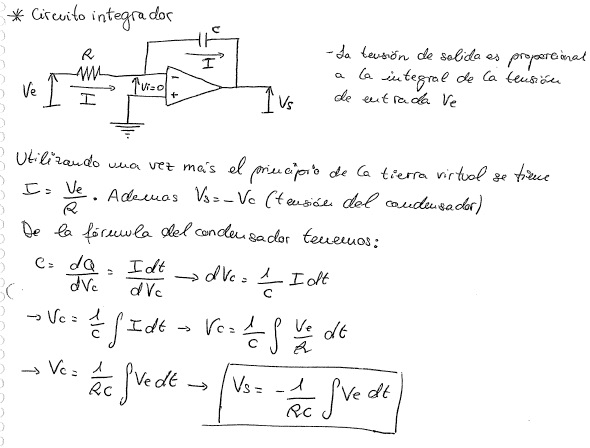 * Circuito integrador
R
C
I
Ve
I
Vi=0
-
+
Vs
- La tensión de salida es proporcional
a la integral de la tensión
de entrada Ve
Utilizando una vez más el principio de la tierra virtual se tiene
I = Ve/R . Ademas Vs = -Vc (tensión del condensador)
De la fórmula del condensador tenemos:
C = dQ/dVc = Idt/dVc → dVc = 1/C Idt
→ Vc = 1/C ∫ I dt → Vc = 1/C ∫ Ve/R dt
→ Vc = 1/RC ∫ Ve dt → Vs = - 1/RC ∫ Ve dt